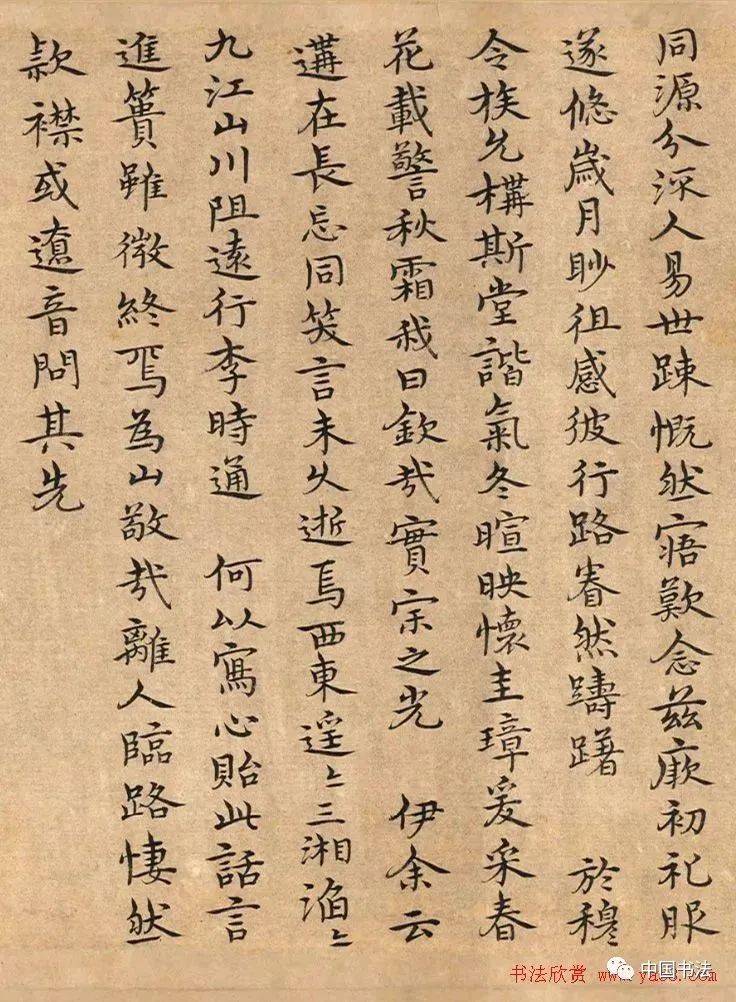 同源分流人易世踈慨然寤歎念茲厥初礼服
遂悠歲月眇徂感彼行路眷然躊躇 於穆
令族允構斯堂諧氣冬暄映懷圭璋爰采春
花載警秋霜我曰欽哉實宗之光 伊余云
遘在長忘同笑言未久逝焉西東遥〻三湘滔〻
九江山川阻遠行李時通 何以寫心貽此話言
進簣雖微終焉為山敬哉離人臨路悽然
款襟或遼音問其先
书法欣赏
中国书法